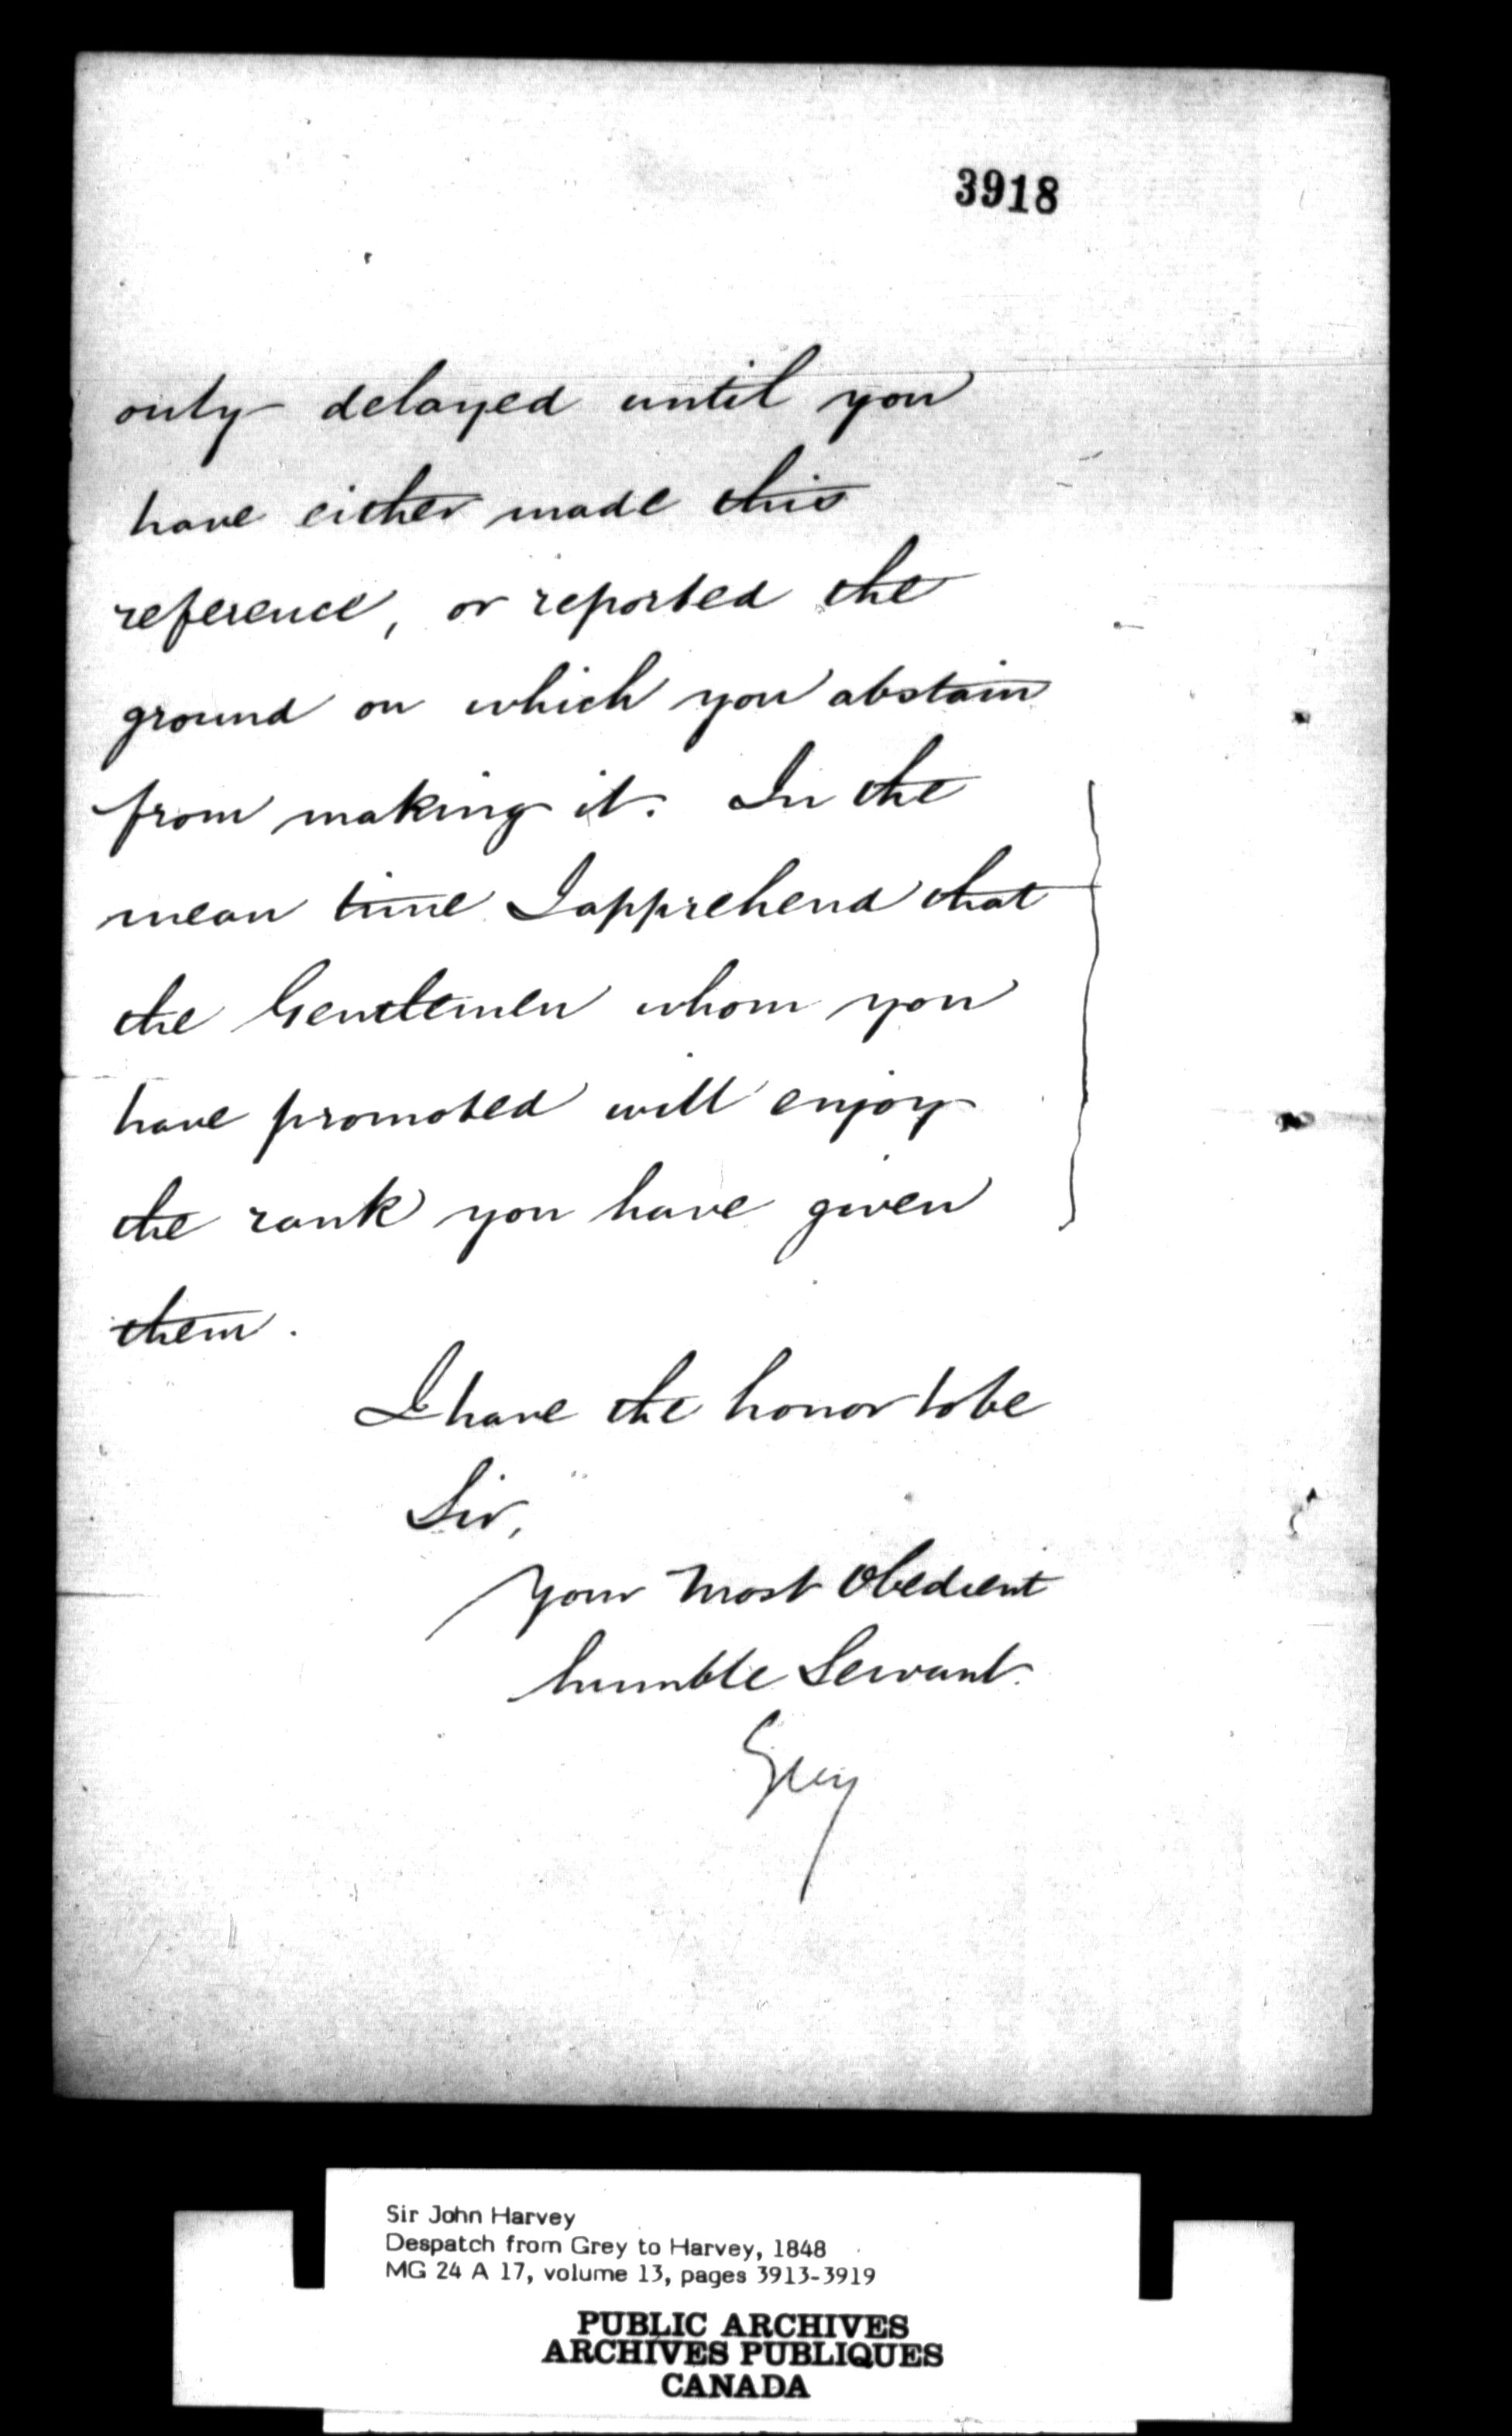 3918
only delayed until you
have either made this
reference, or reported the
ground on which you abstain
from making it. In the
mean time I apprehend that
the Gentlemen whom you
have promoted will enjoy
the rank you have given
them.
I have the honor to be
Sir,
Your Most Obedient
humble Servant.
Grey
Sir John Harvey
Despatch from Grey to Harvey, 1848
MG 24 A 17, volume 13, pages 3913-3919
PUBLIC ARCHIVES
ARCHIVES PUBLIQUES
CANADA